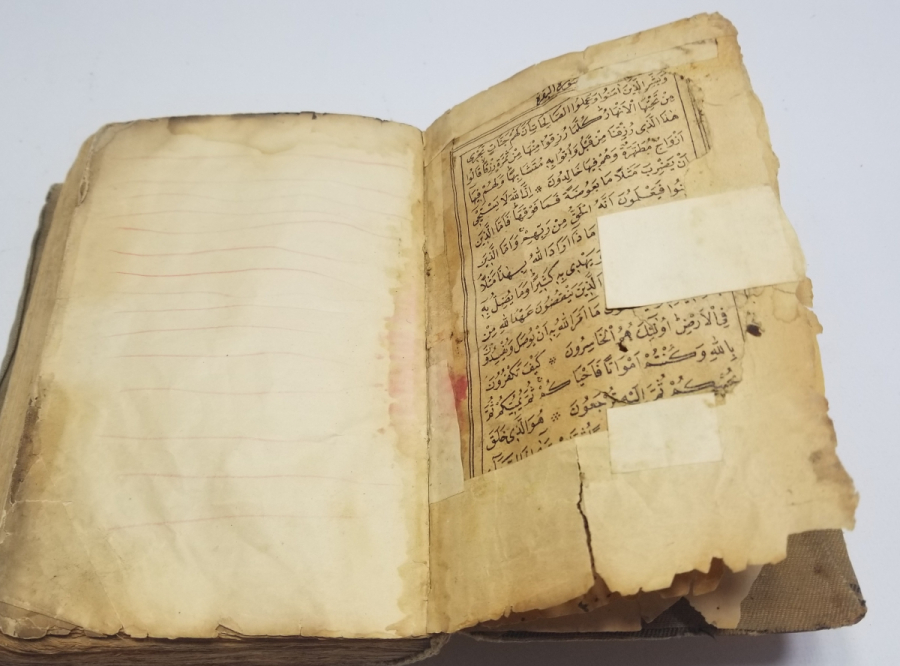 سورة البقرة
وَبَشِّرِ الَّذِينَ آمَنُوا وَعَمِلُوا الصَّالِحَاتِ أَنَّ لَهُمْ جَنَّاتٍ تَجْرِي
مِنْ تَحْتِهَا الْأَنْهَارُ كُلَّمَا رُزِقُوا مِنْهَا مِنْ ثَمَرَةٍ رِزْقًا قَالُوا
هٰذَا الَّذِي رُزِقْنَا مِنْ قَبْلُ وَأُتُوا بِهِ مُتَشَابِهًا وَلَهُمْ فِيهَا
أَزْوَاجٌ مُطَهَّرَةٌ وَهُمْ فِيهَا خَالِدُونَ * إِنَّ اللّٰهَ لَا يَسْتَحْيِي
أَنْ يَضْرِبَ مَثَلًا مَا بَعُوضَةً فَمَا فَوْقَهَا فَأَمَّا الَّذِينَ
فَيَعْلَمُونَ أَنَّهُ الْحَقُّ مِنْ رَبِّهِمْ وَأَمَّا الَّذِينَ
مَاذَا أَرَادَ اللّٰهُ بِهٰذَا مَثَلًا
يَهْدِي بِهِ كَثِيرًا وَمَا يُضِلُّ بِهِ
الَّذِينَ يَنْقُضُونَ عَهْدَ اللّٰهِ مِنْ
مَا أَمَرَ اللّٰهُ بِهِ أَنْ يُوصَلَ وَيُفْسِدُونَ
فِي الْأَرْضِ أُولٰئِكَ هُمُ الْخَاسِرُونَ * كَيْفَ تَكْفُرُونَ
بِاللّٰهِ وَكُنْتُمْ أَمْوَاتًا فَأَحْيَاكُمْ ثُمَّ يُمِيتُكُمْ ثُمَّ
يُحْيِيكُمْ ثُمَّ إِلَيْهِ تُرْجَعُونَ * هُوَ الَّذِي خَلَقَ